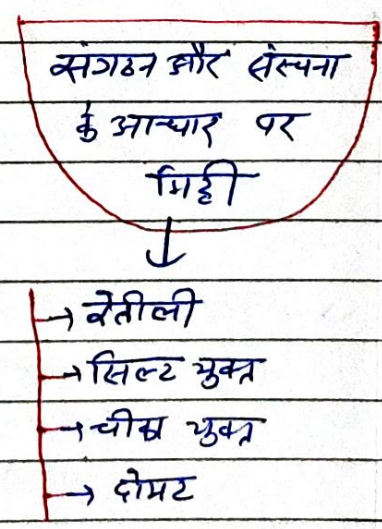 संगठन और संरचना
के आधार पर
मिट्टी
↓
→ रेतीली
→ सिल्ट युक्त
→ चीका युक्त
→ दोमट